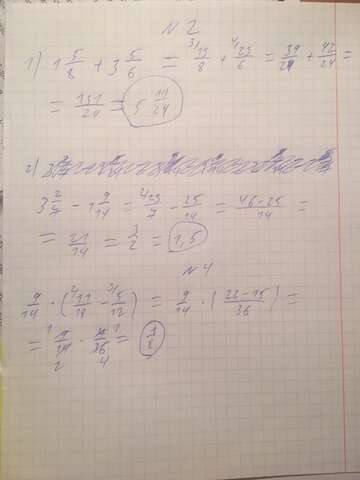 № 2
1) 1 5/8 + 3 5/6 = 3/ 13/8 + 4/ 23/6 = 39/24 + 92/24 =
= 131/24 = 5 11/24
2)
3 2/7 - 1 9/14 = 2/ 23/7 - 25/14 = 46-25/14 =
= 21/14 = 3/2 = 1,5
№ 4
9/14 · ( 2/ 11/18 - 3/ 5/12 ) = 9/14 · ( 22-15/36 ) =
= 9/14 · 7/36 = 1/8
1 1
2 4